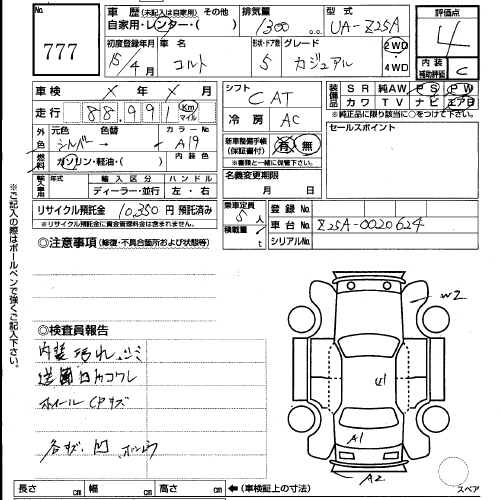 No.
777
車歴 (未記入は自家用) その他
自家用・レンター・( )
排気量
1300 cc
型式
UA-Z25A
評価点
4
内装
補助評価
C
初度登録年月
15/4月
車名
コルト
形状・ドア数
5
グレード
カジュアル
2WD
・
4WD
車検
X年X月
走行
88,991
Km
マイル
シフト
CAT
冷房
AC
装備品
SR 純AW PS PW
カワ TV ナビ エアB
※純正品に限り該当に○をつけて下さい。
外色
元色 色替 カラーNo
シルバー → A19
燃料
ガソリン・軽油・( )
内装色
新車整備手帳
(保証書付)
有・無
※書類と一緒に保管下さい。
セールスポイント
名義変更期限
月 日
輸入車用
年式 輸入区分 ハンドル
ディーラー・並行 左・右
リサイクル預託金 10,350円 預託済み
※リサイクル預託金に資金管理料金は含まれません。
乗車定員
5人
積載量
t
登録No.
車台No. Z25A-0020624
シリアルNo.
◎注意事項 (修復・不具合箇所および状態等)
◎検査員報告
内装汚れ
ホイールCPキズ
各キズ、凹
W2
U1
A1
A2
長さ cm 幅 cm 高さ cm
←(車検証上の寸法)
スペア
※ご記入の際はボールペンで強くご記入下さい。